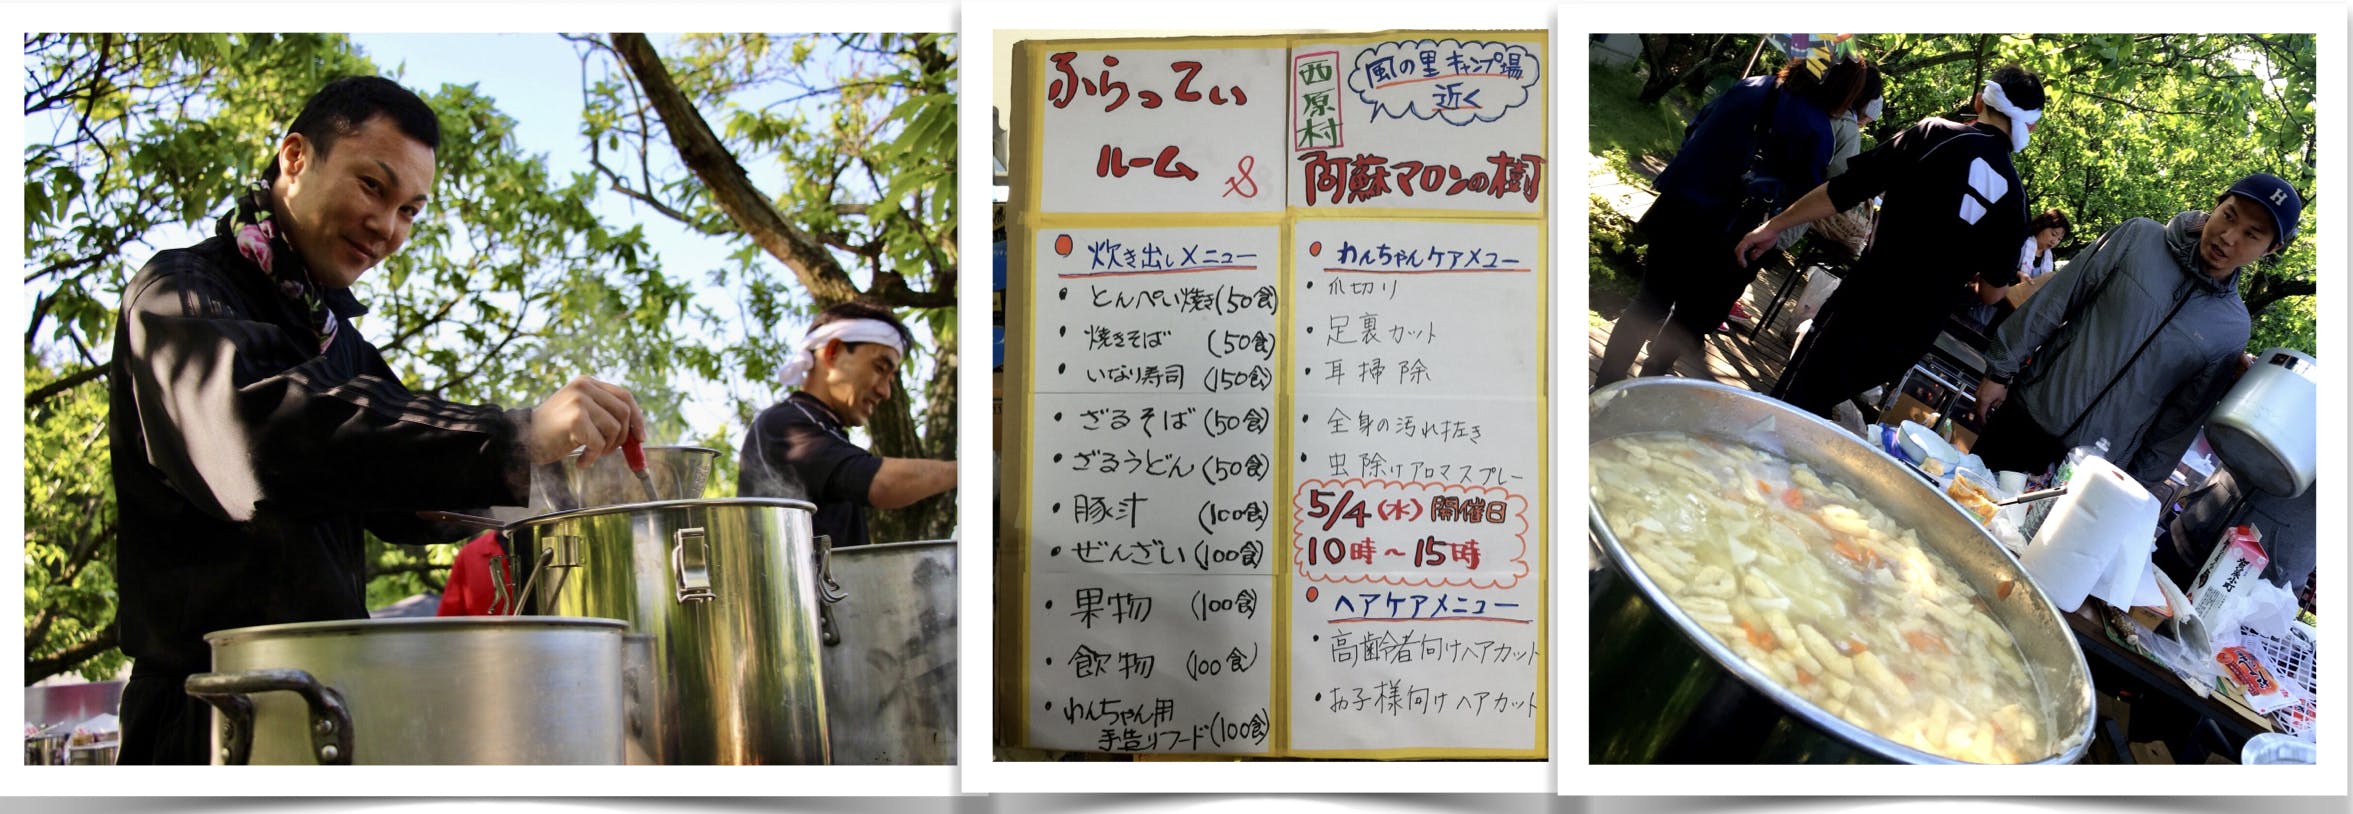 ふらってぃ
ルーム &
西原村
風の里キャンプ場
近く
阿蘇マロンの樹
炊き出しメニュー
・とんぺい焼き(50食)
・焼きそば (50食)
・いなり寿司 (150食)
・ざるそば (50食)
・ざるうどん (50食)
・豚汁 (100食)
・ぜんざい (100食)
・果物 (100食)
・飲物 (100食)
・わんちゃん用
手造りフード (100食)
わんちゃんケアメニュー
・爪切り
・足裏カット
・耳掃除
・全身の汚れ抜き
・虫除けアロマスプレー
5/4(水)開催日
10時~15時
ヘアケアメニュー
・高齢者向けヘアカット
・お子様向けヘアカット
H